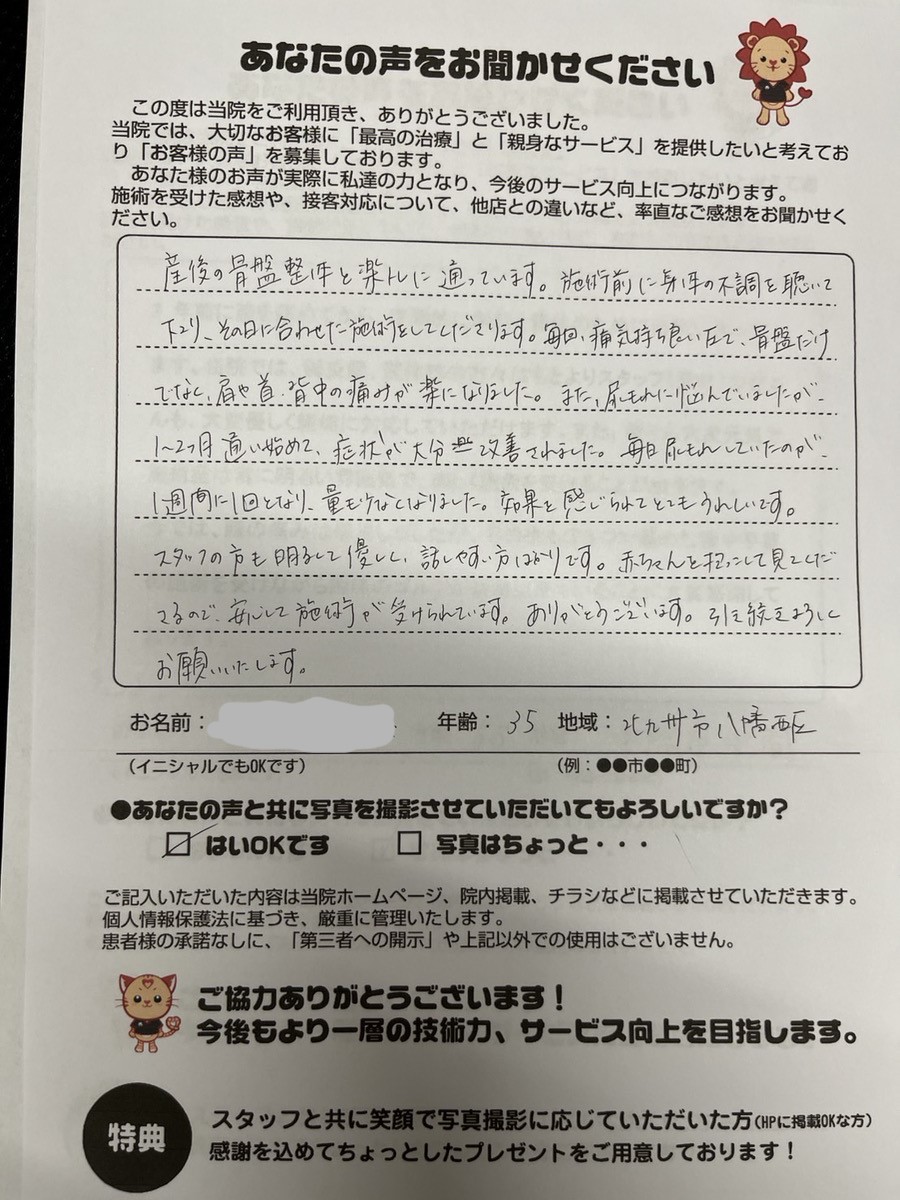 あなたの声をお聞かせください
この度は当院をご利用頂き、ありがとうございました。
当院では、大切なお客様に「最高の治療」と「親身なサービス」を提供したいと考えてお
り「お客様の声」を募集しております。
あなた様のお声が実際に私達の力となり、今後のサービス向上につながります。
施術を受けた感想や、接客対応について、他店との違いなど、率直なご感想をお聞かせく
ださい。
産後の骨盤整体と楽トレに通っています。施術前に身体の不調を聴いて
下さり、その日に合わせた施術をしてくださります。毎回、痛気持ち良い圧で、骨盤だけ
でなく、肩や首、背中の痛みが楽になりました。また、尿もれに悩んでいましたが、
1〜2ヶ月通い始めて、症状が大分改善されました。毎日尿もれしていたのが、
1週間に1回となり、量も少なくなりました。効果を感じられてとてもうれしいです。
スタッフの方も明るくて優しく、話しやすい方ばかりです。赤ちゃんを抱っこして見てくだ
さるので、安心して施術が受けられています。ありがとうございます。引き続きよろしく
お願いいたします。
お名前： 年齢： 35 地域： 北九州市八幡西区
（イニシャルでもOKです） （例：●●市●●町）
●あなたの声と共に写真を撮影させていただいてもよろしいですか？
☑ はいOKです □ 写真はちょっと・・・
ご記入いただいた内容は当院ホームページ、院内掲載、チラシなどに掲載させていただきます。
個人情報保護法に基づき、厳重に管理いたします。
患者様の承諾なしに、「第三者への開示」や上記以外での使用はございません。
ご協力ありがとうございます！
今後もより一層の技術力、サービス向上を目指します。
特典
スタッフと共に笑顔で写真撮影に応じていただいた方（HPに掲載OKな方）
感謝を込めてちょっとしたプレゼントをご用意しております！